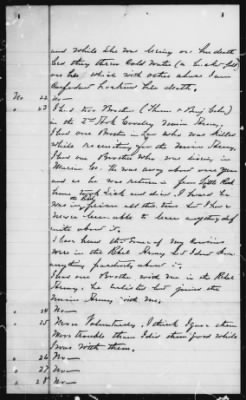 and while she was lying on her death
bed they threw Cold Water (a bucket full)
on her, which with other abuse I am
Confident hastened her death.
No 22 No—
" 23 I had two Brothers
in the 2nd Ark Cavalry Union Army.
I had one Brother in law who was killed
while recruiting for the Union Army.
I had one Brother who was living in
Marion Co. He was away about one year
and as he was return in from Little Rock
home took Sick and died. I heard he
was in prison all that time but I have
never been able to learn anything def
inite about it.
I have heard that some of my Cousins
were in the Rebel Army but I dont know
anything about it.
I had one Brother with me in the Rebel
Army. he enlisted but joined the
Union Army with me.
" 24 No—
" 25 Never Voluntarily. I think I gave them
more trouble than I did them good while
I was with them.
" 26 No—
" 27 No—
" 28 No—